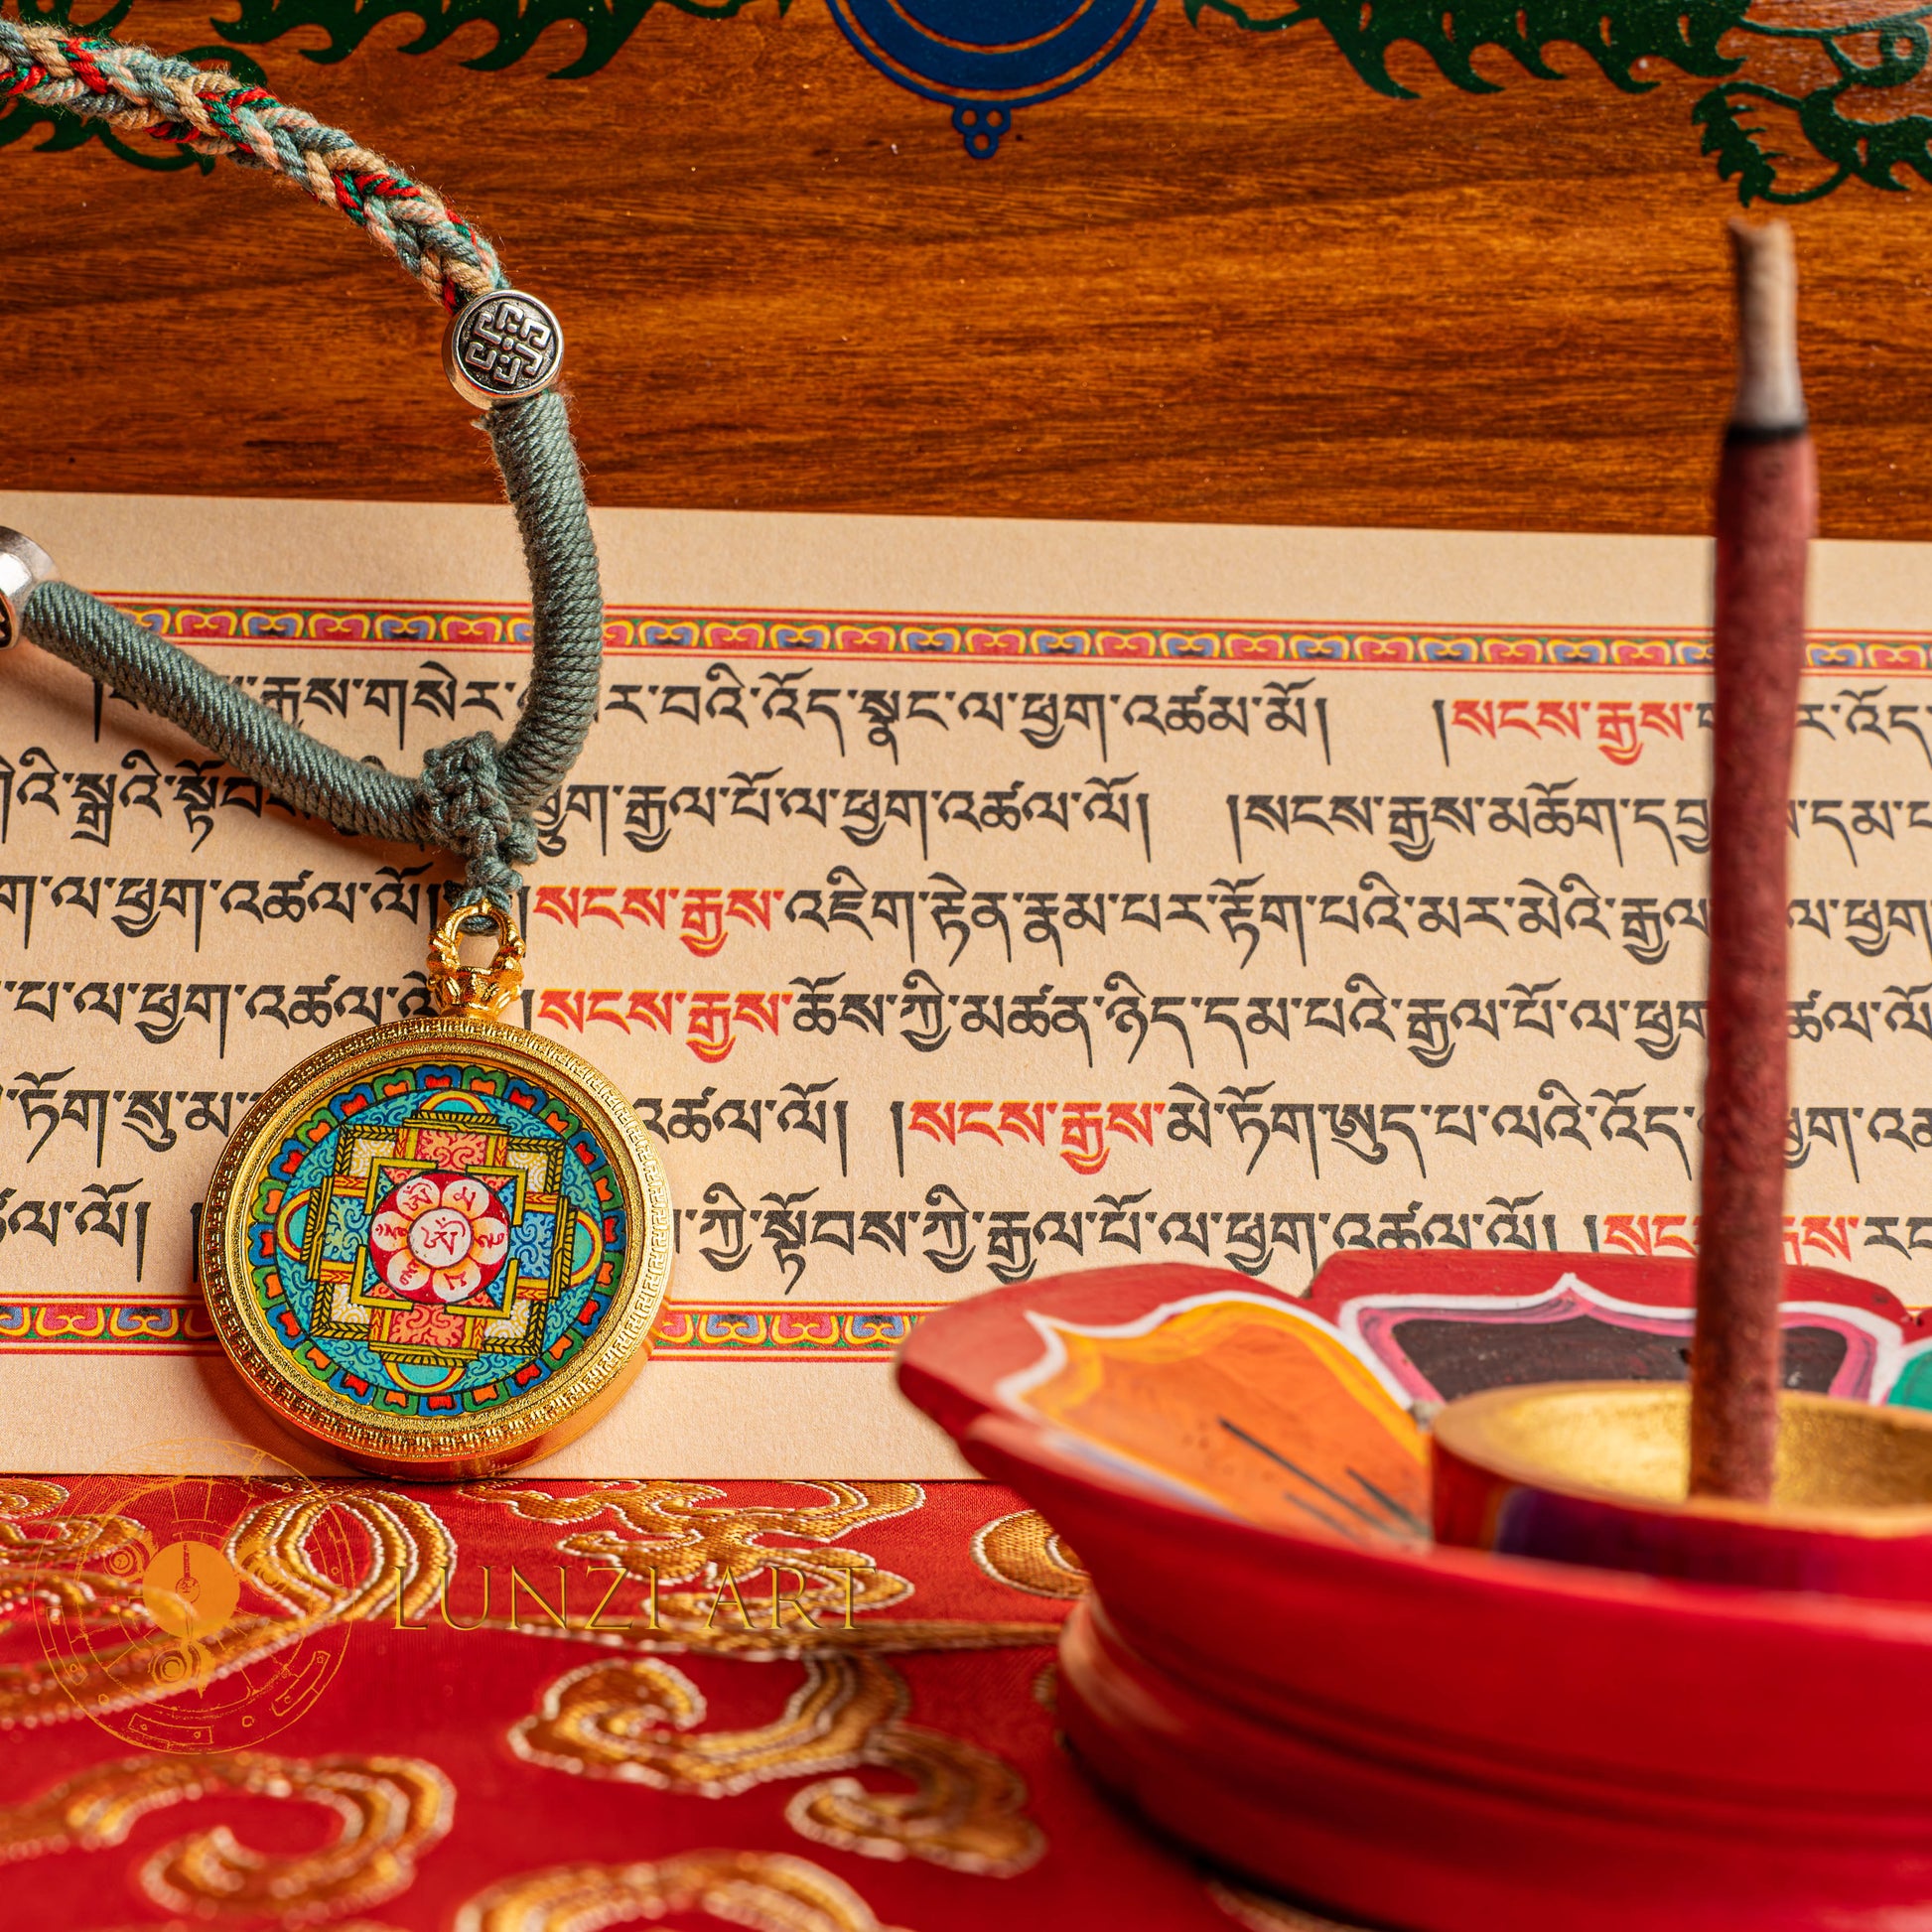 རྒྱས་གསེར་ ར་བའི་འོད་སྣང་ལ་ཕྱག་འཚམ་མོ། །སངས་རྒྱས་ ར་འོད་
འི་སྒྲའི་སྟོབ ཕྱུག་རྒྱལ་པོ་ལ་ཕྱག་འཚལ་ལོ། །སངས་རྒྱས་མཆོག་ དམ་པ
ག་ལ་ཕྱག་འཚལ་ལོ། །སངས་རྒྱས་འཇིག་རྟེན་རྣམ་པར་རྟོག་པའི་མར་མེའི་རྒྱལ ལ་ཕྱག
་པ་ལ་ཕྱག་འཚལ་ལོ །སངས་རྒྱས་ཆོས་ཀྱི་མཚན་ཉིད་དམ་པའི་རྒྱལ་པོ་ལ་ཕྱག འཚལ་ལོ
་ཏོག་སྲུ་མ འཚལ་ལོ། །སངས་རྒྱས་མེ་ཏོག་ཨུད་པ་ལའི་འོད་ ཕྱག་འཚ
ཚལ་ལོ། །ཀྱི་སྟོབས་ཀྱི་རྒྱལ་པོ་ལ་ཕྱག་འཚལ་ལོ། །སངས་རྒྱས་རབ
LUNZI ART